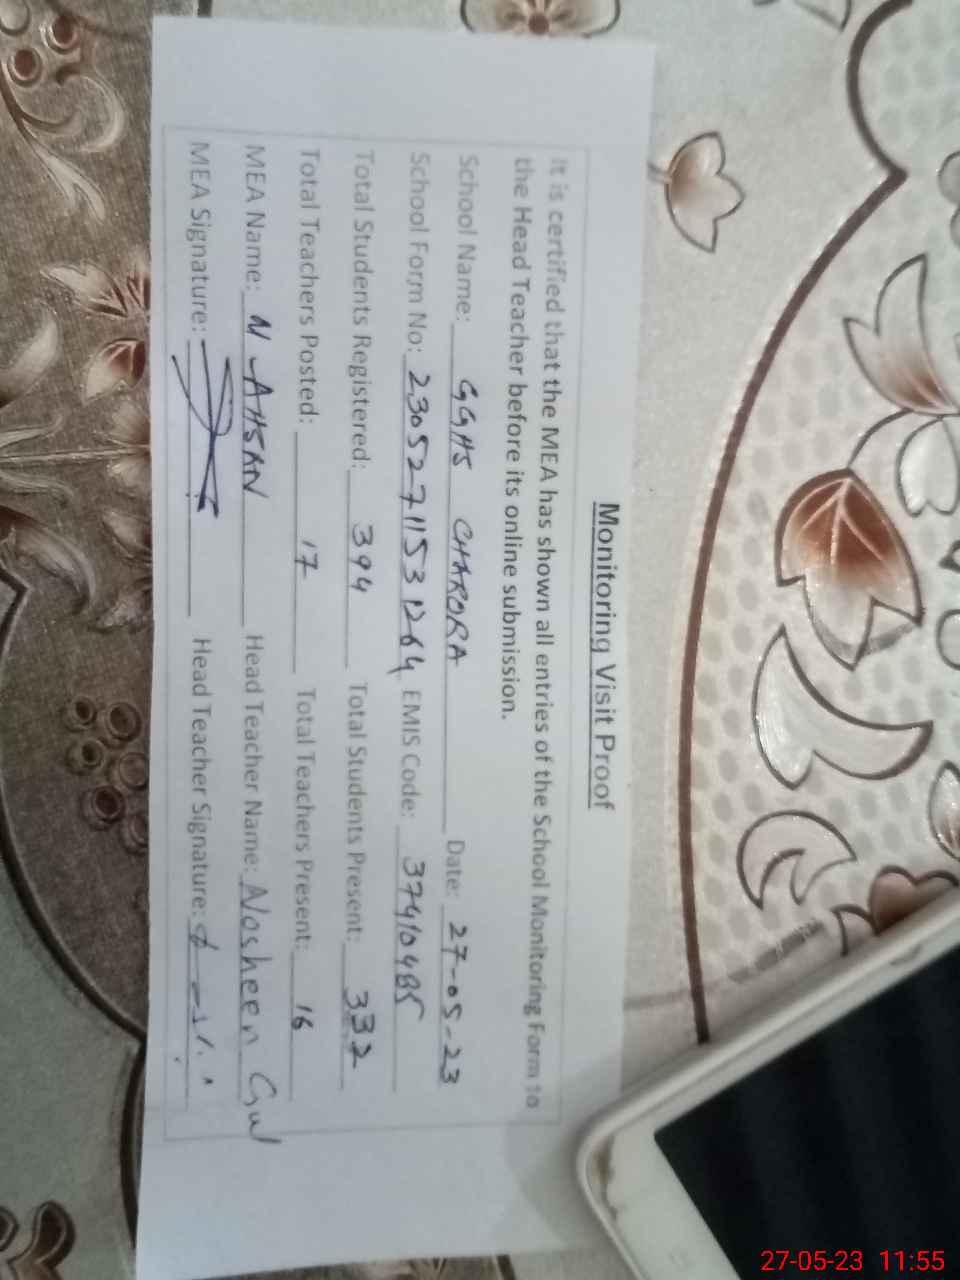 Monitoring Visit Proof
It is certified that the MEA has shown all entries of the School Monitoring Form to
the Head Teacher before its online submission.
School Name: GGHS CHARORA Date: 27-05-23
School Form No: 2305271153 1264 EMIS Code: 37410485
Total Students Registered: 394 Total Students Present: 332
Total Teachers Posted: 17 Total Teachers Present: 16
MEA Name: N-AHSAN Head Teacher Name: Nosheen Gul
MEA Signature: Head Teacher Signature:
27-05-23 11:55